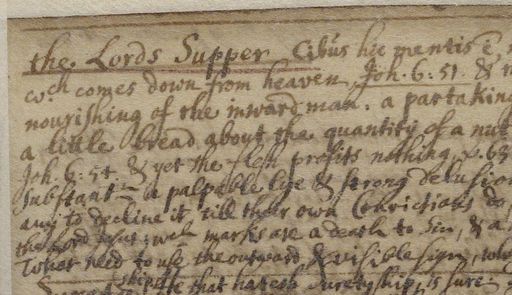 the Lords Supper Cibus hic mentis ē
wch comes down from heaven, Joh. 6: 51. &
nourishing of the inward man. a partaking
a little bread about the quantity of a nut
Joh. 6: 54. & yet the flesh profits nothing v. 63
substant a palpable lye & strong delusion
any to decline it, till their own Christians do,
the Lord Jesus: wch marks are a death to Sin, & a
What need to use the outward & visible sign, wh
that hateth suretyship, is sure